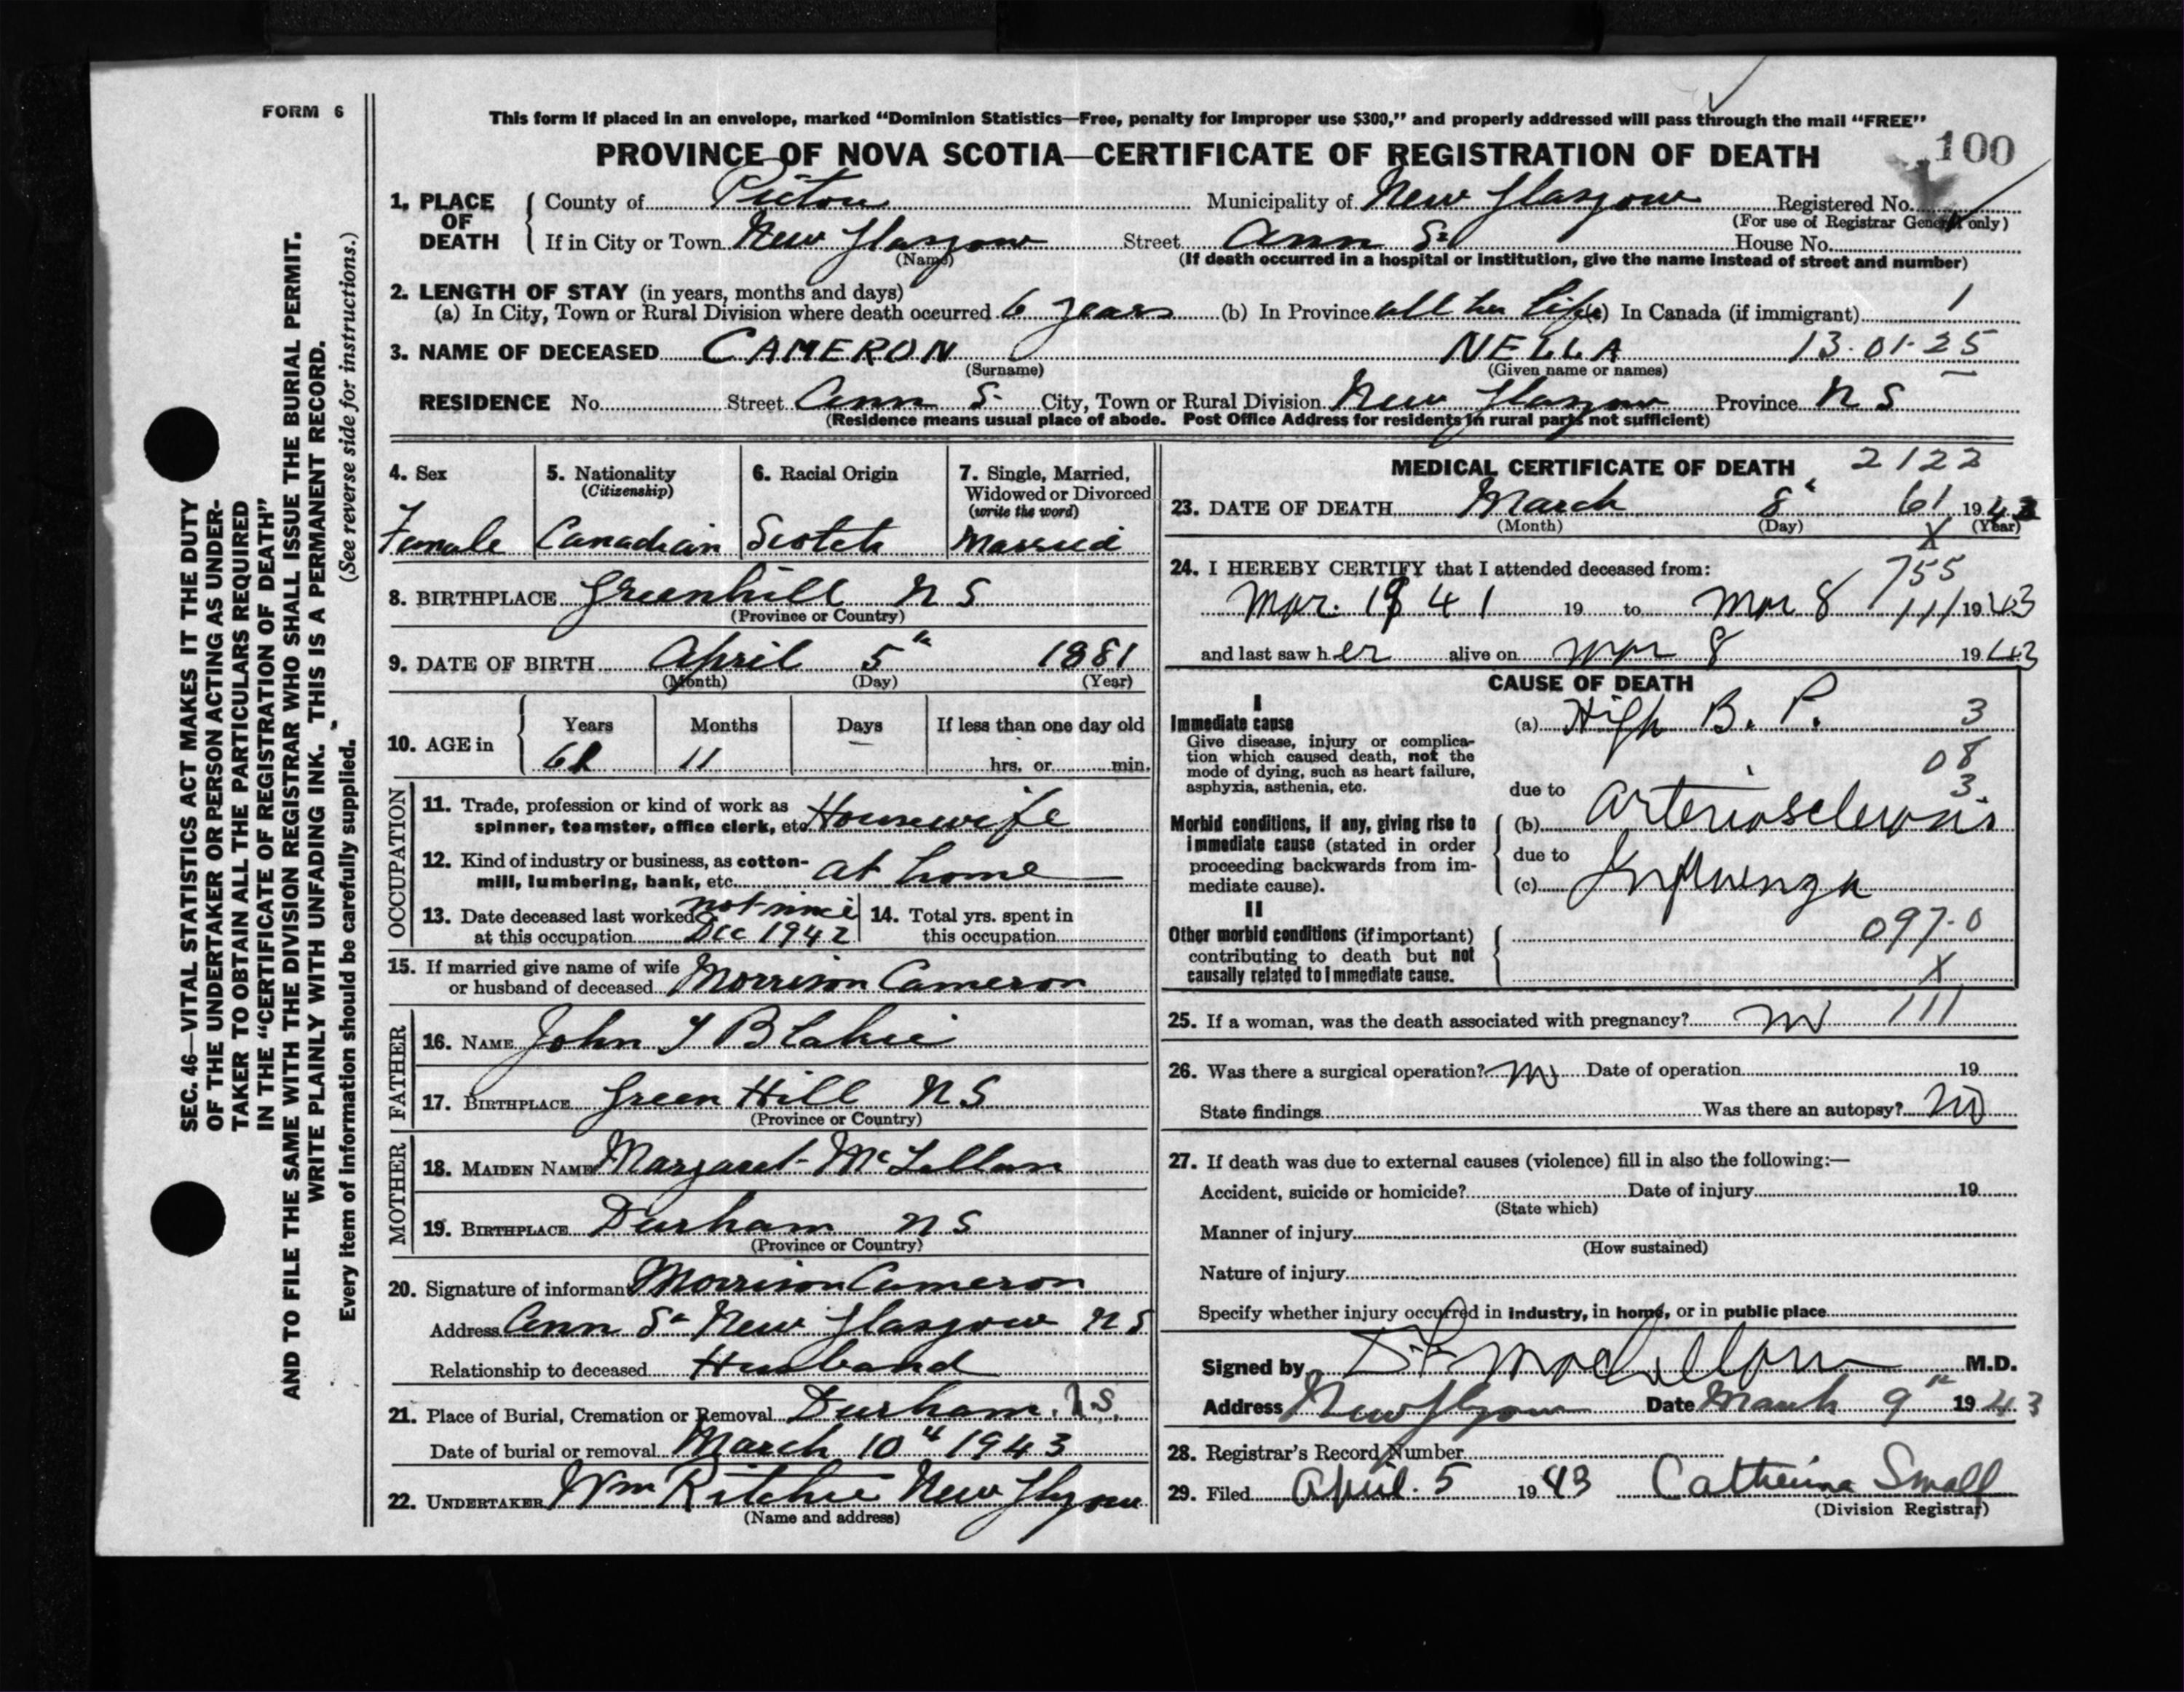 FORM 6
This form if placed in an envelope, marked “Dominion Statistics—Free, penalty for improper use $300,” and properly addressed will pass through the mail “FREE”
PROVINCE OF NOVA SCOTIA—CERTIFICATE OF REGISTRATION OF DEATH
100
1. PLACE OF DEATH
County of Pictou Municipality of New Glasgow Registered No.
(For use of Registrar General only)
If in City or Town New Glasgow Street Ann St House No.
(Name)
(If death occurred in a hospital or institution, give the name instead of street and number)
2. LENGTH OF STAY (in years, months and days)
(a) In City, Town or Rural Division where death occurred 6 years (b) In Province all her life (c) In Canada (if immigrant) 1
3. NAME OF DECEASED CAMERON NELLA 13-01-25
(Surname) (Given name or names)
RESIDENCE No. Street Ann St City, Town or Rural Division New Glasgow Province N S
(Residence means usual place of abode. Post Office Address for residents in rural parts not sufficient)
4. Sex
Female
5. Nationality
(Citizenship)
Canadian
6. Racial Origin
Scotch
7. Single, Married,
Widowed or Divorced
(write the word)
Married
8. BIRTHPLACE Greenhill N S
(Province or Country)
9. DATE OF BIRTH April 5th 1881
(Month) (Day) (Year)
10. AGE in
Years Months Days If less than one day old
61 11 — hrs. or min.
OCCUPATION
11. Trade, profession or kind of work as
spinner, teamster, office clerk, etc Housewife
12. Kind of industry or business, as cotton-
mill, lumbering, bank, etc. at home
13. Date deceased last worked not since
at this occupation Dec 1942
14. Total yrs. spent in
this occupation
15. If married give name of wife
or husband of deceased Morrison Cameron
FATHER
16. NAME John Y Blakie
17. BIRTHPLACE Green Hill N S
(Province or Country)
MOTHER
18. MAIDEN NAME Margaret McLellan
19. BIRTHPLACE Durham N S
(Province or Country)
20. Signature of informant Morrison Cameron
Address Ann St New Glasgow N S
Relationship to deceased Husband
21. Place of Burial, Cremation or Removal Durham. N.S.
Date of burial or removal March 10th 1943
22. UNDERTAKER Wm Ritchie New Glasgow
(Name and address)
MEDICAL CERTIFICATE OF DEATH 2122
23. DATE OF DEATH March 8th 61 1943
(Month) (Day) (Year)
X
24. I HEREBY CERTIFY that I attended deceased from:
755
Mar. 1941 19 to Mar 8 111 1943
and last saw her alive on Mar 8 1943
CAUSE OF DEATH
I
Immediate cause
Give disease, injury or complica-
tion which caused death, not the
mode of dying, such as heart failure,
asphyxia, asthenia, etc.
(a) High B. P. 3
08
due to 3
Morbid conditions, if any, giving rise to
immediate cause (stated in order
proceeding backwards from im-
mediate cause).
(b) Arteriosclerosis
due to
(c) Influenza
II
Other morbid conditions (if important)
contributing to death but not
causally related to immediate cause.
097-0
X
25. If a woman, was the death associated with pregnancy? no 111
26. Was there a surgical operation? no Date of operation 19
State findings Was there an autopsy? no
27. If death was due to external causes (violence) fill in also the following:—
Accident, suicide or homicide? Date of injury 19
(State which)
Manner of injury
(How sustained)
Nature of injury
Specify whether injury occurred in industry, in home, or in public place
Signed by M.D.
Address New Glasgow Date March 9th 1943
28. Registrar's Record Number
29. Filed April 5 1943 Catherine Small
(Division Registrar)
SEC. 46—VITAL STATISTICS ACT MAKES IT THE DUTY
OF THE UNDERTAKER OR PERSON ACTING AS UNDER-
TAKER TO OBTAIN ALL THE PARTICULARS REQUIRED
IN THE “CERTIFICATE OF REGISTRATION OF DEATH”
AND TO FILE THE SAME WITH THE DIVISION REGISTRAR WHO SHALL ISSUE THE BURIAL PERMIT.
WRITE PLAINLY WITH UNFADING INK. THIS IS A PERMANENT RECORD.
Every item of information should be carefully supplied. (See reverse side for instructions.)